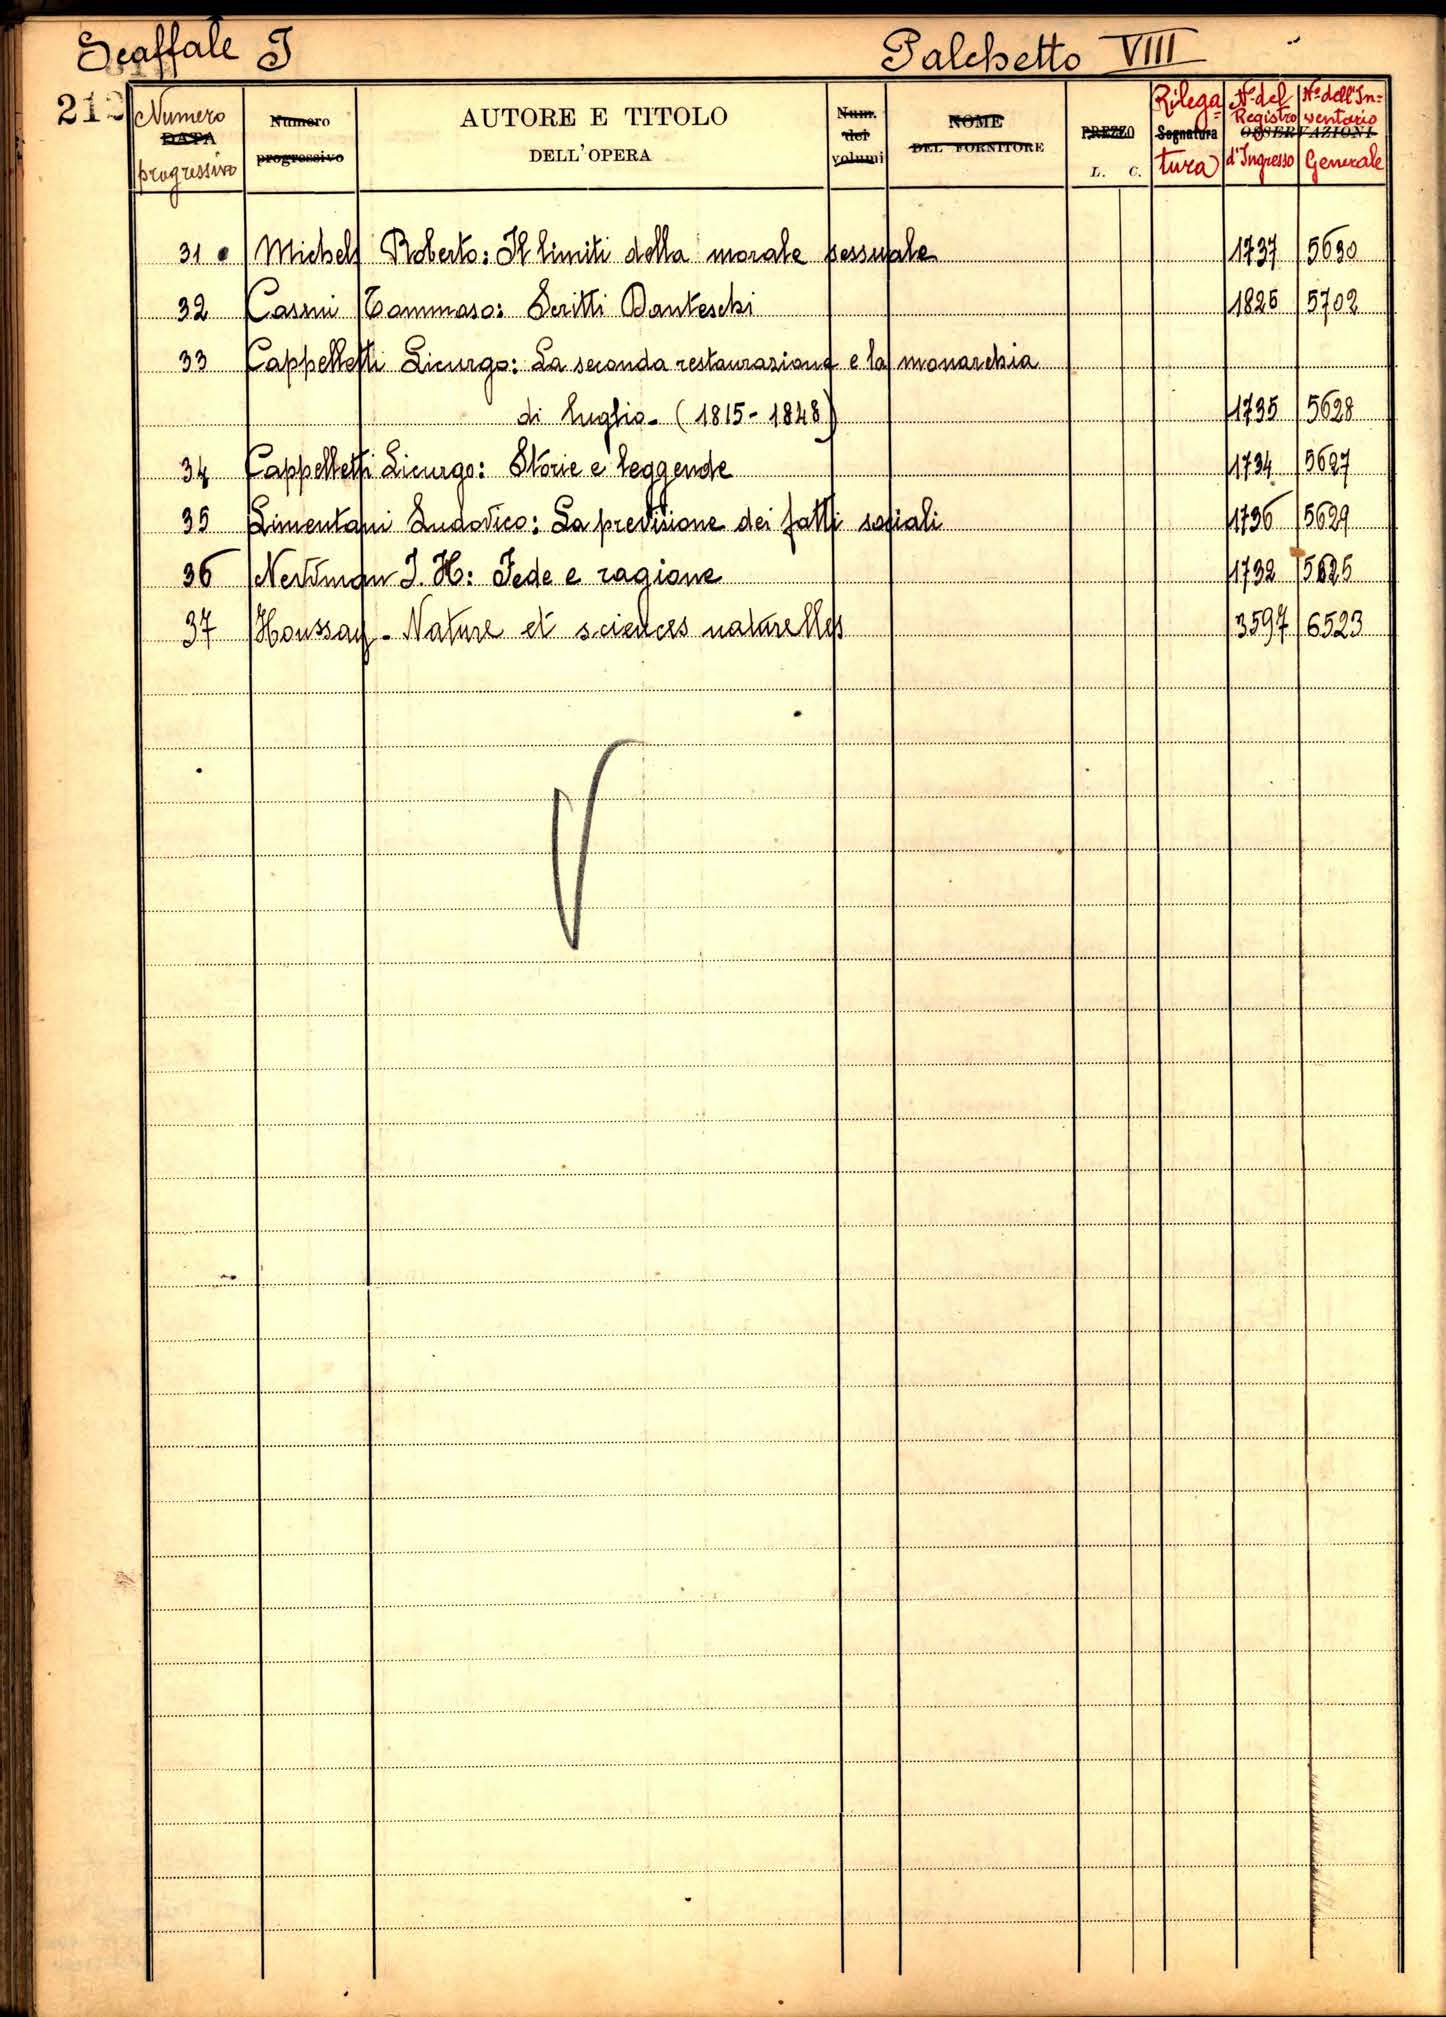 Scaffale I Palchetto VIII
212
Numero DATA progressivo Numero progressivo AUTORE E TITOLO DELL'OPERA Num. dei volumi NOME DEL FORNITORE PREZZO L. C. Rilega= Segnatura tura N° del Registro d'Ingresso OSSERVAZIONI N° dell'In= ventario Generale
31 Michels Roberto: Il limiti della morale sessuale 1737 5630
32 Casini Tommaso: Scritti Danteschi 1826 5702
33 Cappelletti Licurgo: La seconda restaurazione e la monarchia
di luglio. (1815-1848) 1735 5628
34 Cappelletti Licurgo: Storie e leggende 1734 5627
35 Limentani Ludovico: La previsione dei fatti sociali 1736 5629
36 Newman J. H: Fede e ragione 1732 5625
37 Houssay - Nature et sciences naturelles 3597 6523